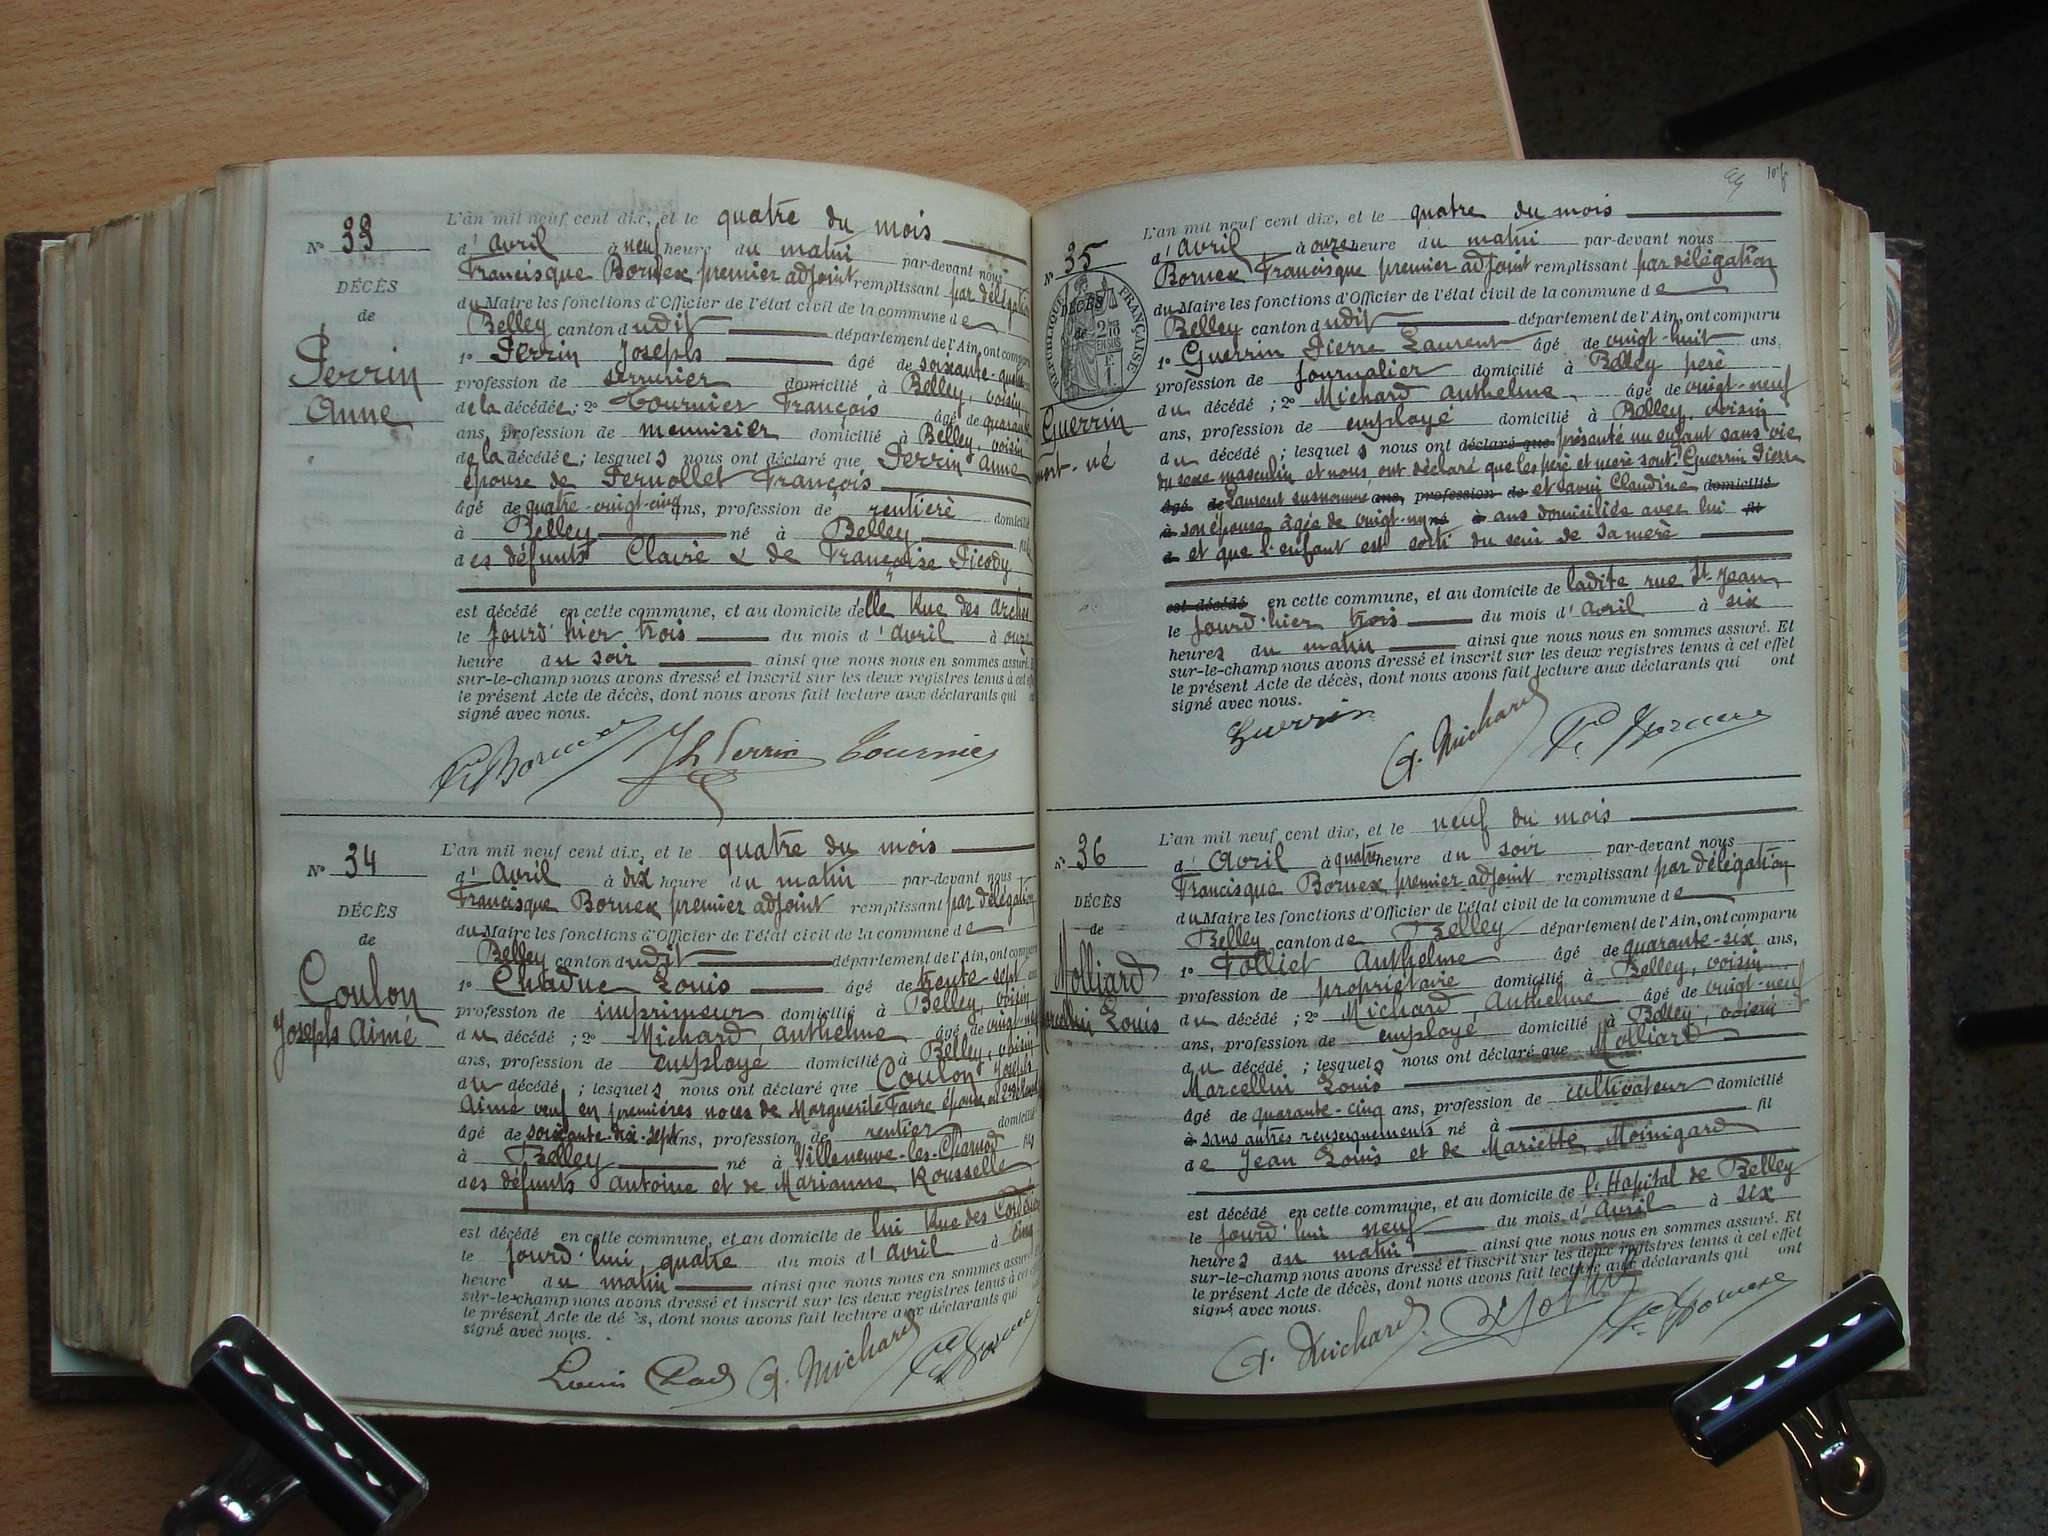 N° 33
DÉCÈS
de
Perrin
Anne
L'an mil neuf cent dix, et le quatre du mois
d'avril à neuf heure du matin par-devant nous
Francisque Bornex premier adjoint remplissant par délégation
du Maire les fonctions d'Officier de l'état civil de la commune de
Belley canton dudit département de l'Ain, ont comparu
1° Perrin Joseph âgé de soixante-quatre
profession de serrurier domicilié à Belley, voisin
de la décédée; 2° Tournier François âgé de quarante
ans, profession de menuisier domicilié à Belley, voisin
de la décédée; lesquels nous ont déclaré que Perrin Anne
épouse de Fernollet François
âgé de quatre-vingt-cinq ans, profession de rentière domicilié
à Belley né à Belley fille
des défunts Claire & de Françoise Picody
est décédé en cette commune, et au domicile d'elle Rue des Arches
le jourd'hier trois du mois d'avril à onze
heure du soir ainsi que nous nous en sommes assuré. Et
sur-le-champ nous avons dressé et inscrit sur les deux registres tenus à cet effet
le présent Acte de décès, dont nous avons fait lecture aux déclarants qui ont
signé avec nous.
Fe Bornex Jh Perrin Tournier
N° 34
DÉCÈS
de
Coulon
Joseph Aimé
L'an mil neuf cent dix, et le quatre du mois
d'avril à dix heure du matin par-devant nous
Francisque Bornex premier adjoint remplissant par délégation
du Maire les fonctions d'Officier de l'état civil de la commune de
Belley canton dudit département de l'Ain, ont comparu
1° Chaduc Louis âgé de trente-sept ans
profession de imprimeur domicilié à Belley, voisin
du décédé; 2° Michard, Anthelme âgé de vingt-neuf
ans, profession de employé domicilié à Belley, voisin
du décédé; lesquels nous ont déclaré que Coulon Joseph
Aimé veuf en premières noces de Marguerite Favre époux en 2des
âgé de soixante-dix-sept ans, profession de rentier domicilié
à Belley né à Villeneuve-les-Charnod fils
des défunts Antoine et de Marianne Rousselle
est décédé en cette commune, et au domicile de lui Rue des Cordeliers
le jourd'hui quatre du mois d'avril à cinq
heure du matin ainsi que nous nous en sommes assuré
sur-le-champ nous avons dressé et inscrit sur les deux registres tenus à cet effet
le présent Acte de décès, dont nous avons fait lecture aux déclarants qui
signé avec nous.
Louis Chaduc A. Michard Fe Bornex
107
N° 35
DÉCÈS
de
RÉPUBLIQUE FRANÇAISE
2/10 EN SUS
1 F
Guerrin
mort-né
L'an mil neuf cent dix, et le quatre du mois
d'avril à onze heure du matin par-devant nous
Bornex Francisque premier adjoint remplissant par délégation
du Maire les fonctions d'Officier de l'état civil de la commune de
Belley canton dudit département de l'Ain, ont comparu
1° Guerrin Pierre Laurent âgé de vingt-huit ans,
profession de journalier domicilié à Belley père
du décédé; 2° Michard Anthelme âgé de vingt-neuf
ans, profession de employé domicilié à Belley, voisin
du décédé; lesquels nous ont déclaré que présenté un enfant sans vie
du sexe masculin et nous ont déclaré que les père et mère sont: Guerrin Pierre
âgé de Laurent susnommé ans, profession de et Savin Claudine domicilié
à son épouse âgée de vingt-un né à ans domiciliés avec lui fil
d et que l'enfant est sorti du sein de sa mère
est décédé en cette commune, et au domicile de ladite rue St Jean
le jourd'hier trois du mois d'avril à six
heures du matin ainsi que nous nous en sommes assuré. Et
sur-le-champ nous avons dressé et inscrit sur les deux registres tenus à cet effet
le présent Acte de décès, dont nous avons fait lecture aux déclarants qui ont
signé avec nous.
Guerrin A. Michard Fe Bornex
N° 36
DÉCÈS
de
Molliard
Marcellin Louis
L'an mil neuf cent dix, et le neuf du mois
d'Avril à quatre heure du soir par-devant nous
Francisque Bornex premier adjoint remplissant par délégation
du Maire les fonctions d'Officier de l'état civil de la commune de
Belley canton de Belley département de l'Ain, ont comparu
1° Folliet Anthelme âgé de quarante-six ans,
profession de propriétaire domicilié à Belley, voisin
du décédé; 2° Michard, Anthelme âgé de vingt-neuf
ans, profession de employé domicilié à Belley, voisin
du décédé; lesquels nous ont déclaré que Molliard
Marcellin Louis
âgé de quarante-cinq ans, profession de cultivateur domicilié
à sans autres renseignements né à fil
de Jean Louis et de Mariette Moinigard
est décédé en cette commune, et au domicile de l'Hopital de Belley
le jourd'hui neuf du mois d'Avril à six
heures du matin ainsi que nous nous en sommes assuré. Et
sur-le-champ nous avons dressé et inscrit sur les deux registres tenus à cet effet
le présent Acte de décès, dont nous avons fait lecture aux déclarants qui ont
signé avec nous.
A. Michard Fe Bornex